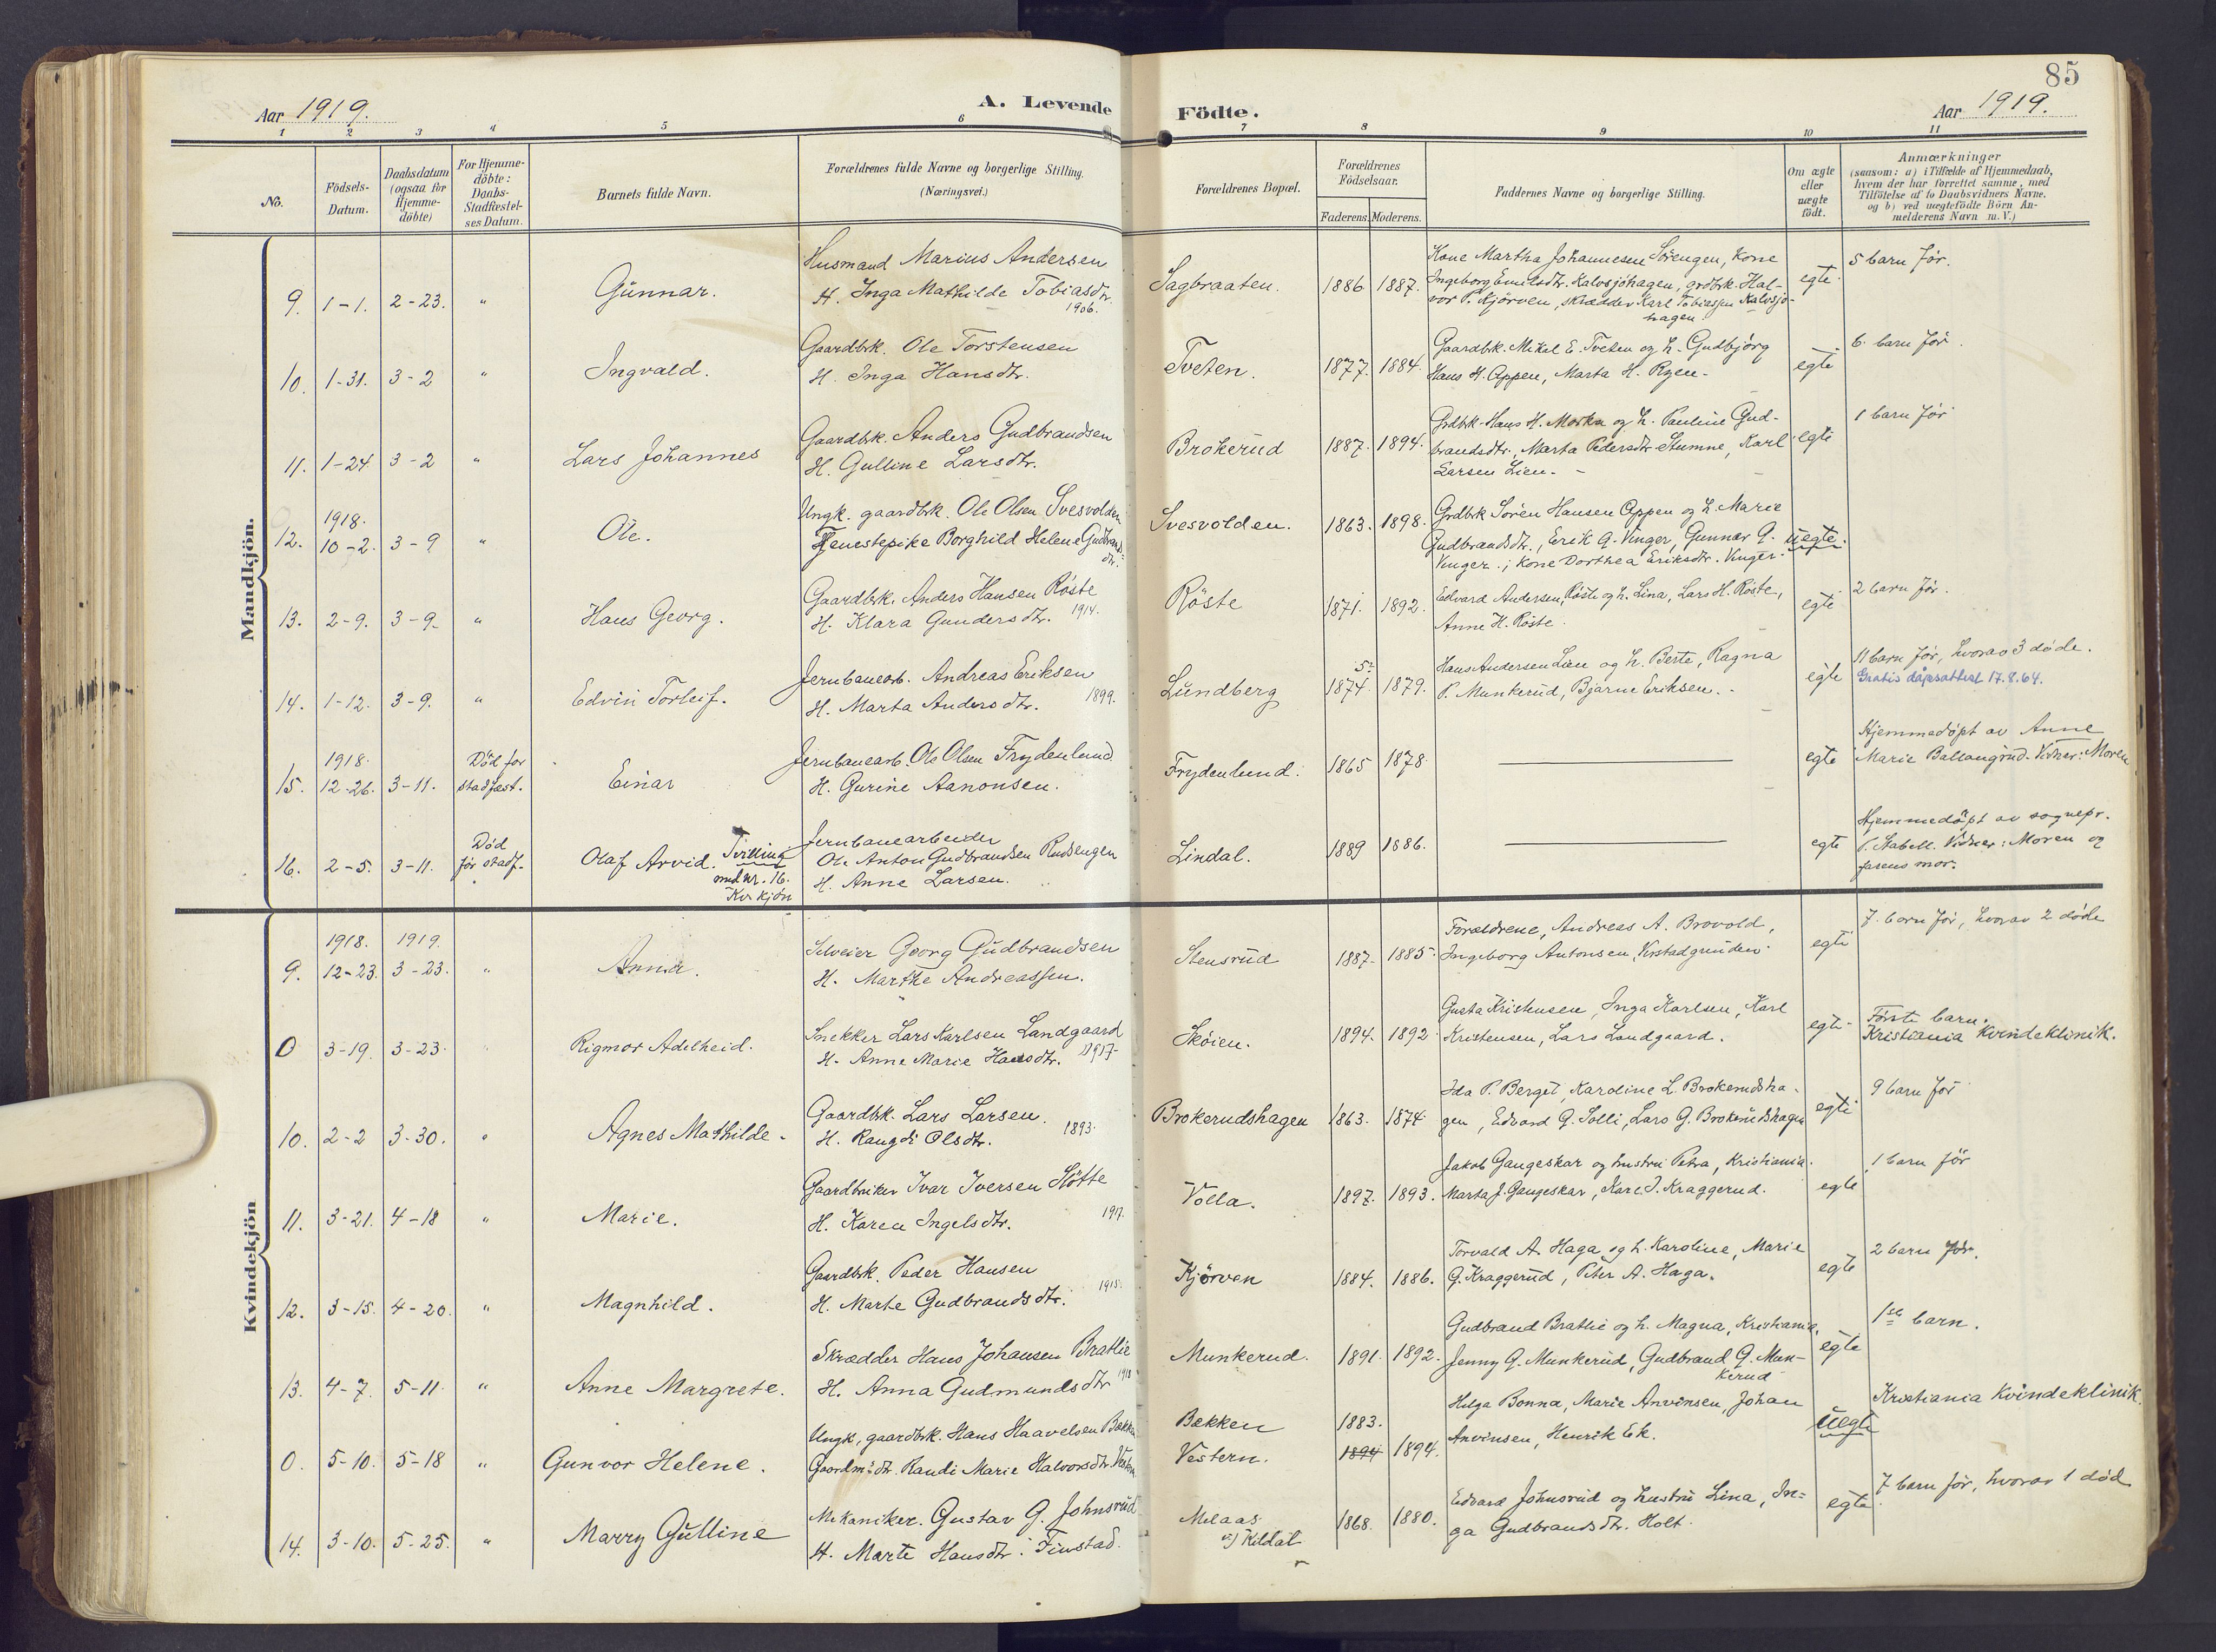 85
Aar 1919.
A. Levende
Födte.
Aar 1919.
1 2 3 4 5 6 7 8 9 10 11
No.
Födsels-
Datum.
Daabsdatum
(ogsaa for
Hjemme-
döbte)
For Hjemme-
döbte:
Daabs-
Stadfæstel-
ses Datum.
Barnets fulde Navn.
Forældrenes fulde Navne og borgerlige Stilling.
(Næringsvei.)
Forældrenes Bopæl.
Forældrenes
Födselsaar.
Faderens. Moderens.
Faddernes Navne og borgerlige Stilling.
Om ægte
eller
uægte
födt.
Anmærkninger
(saasom: a) i Tilfælde af Hjemmedaab,
hvem der har forrettet samme, med
Tilföielse af to Daabsvidners Navne.
og b) ved uægtefödte Börn An-
melderens Navn m. V.)
Mandkjön.
9. 1-1. 2-23. " Gunnar.
Husmand Marius Andersen
H. Inga Mathilde Tobiasdtr.
1906.
Sagbraaten. 1886 1887.
Kone Martha Johannesen Sörengen, Kone
Ingeborg Emilsdtr. Kalvsjöhagen, grdbrk. Hal-
vor P. Kjörven, skrædder Karl Tobiassen Kalvsjö-
hagen.
egte. 5 barn för.
10. 1-31. 3-2 " Ingvald.
Gaardbrk. Ole Torstensen
H. Inga Hansdtr.
Tveten. 1877. 1884.
Gaardbrk. Mikal E. Tveten og h. Gudbjörg
Hans H. Oppen, Marta H. Ryen.
egte 6 barn för.
11. 1-24. 3-2 " Lars Johannes
Gaardbrk. Anders Gudbrandsen
H. Gulline Larsdtr.
Brokerud 1887. 1894.
Grdbrk. Hans H. Morka og h. Pauline Gud-
brandsdtr., Marta Pedersdtr. Stumne, Karl
Larsen Lien.
egte 1 barn för
12. 1918. 10-2. 3-9 " Ole.
Ungk. gaardbrk. Ole Olsen Svesvolden
Tjenestepike Borghild Helene Gudbrands-
dtr.
Svesvolden. 1863. 1898.
Grdbrk Sören Hansen Oppen og h. Marie
Gudbrandsdtr., Erik G. Vinger, Gunnar G.
Vinger, Kone Dorthea Eriksdtr. Vinger.
uegte.
13. 2-9. 3-9. " Hans Georg.
Gaardbrk. Anders Hansen Röste
H. Klara Gundersdtr. 1914.
Röste 1871. 1892.
Edvard Andersen Röste og h. Lina, Lars H. Röste,
Anne H. Röste.
egte 2 barn för.
14. 1-12. 3-9. " Edvin Torleif.
Jernbanearb. Andreas Eriksen
H. Marta Andersdtr. 1899.
Lundberg 5. 1874. 1879.
Hans Andersen Lien og h. Berte, Ragna
P. Munkerud, Bjarne Eriksen.
egte 11 barn för, hvorav 3 döde.
Gratis dåpsattest 17.8.64.
15. 1918. 12-26. 3-11. Död för
stadfæst.
Einar
Jernbanearb. Ole Olsen Frydenlund
H. Gurine Aanonsen.
Frydenlund. 1865 1878.
egte Hjemmedöpt av Anne
Marie Ballangrud. Vidner: Moren
16. 2-5. 3-11. Död
för stadf.
Olaf Arvid. Tvilling
med nr. 16.
Kvkjön
Jernbanearbeider
Ole Anton Gudbrandsen Rudsengen
H. Anne Larsen.
Lindal. 1889 1886.
egte Hjemmedöpt av sognepr.
P. Stabell. Vidner: Moren og
farens mor.
Kvindekjön
9. 1918. 12-23. 1919. 3-23. " Anna.
Georg Gudbrandsen
H. Marthe Andreassen.
Stensrud 1887. 1885.
Forældrene, Andreas A. Brovold,
Ingeborg Antonsen,
egte 7 barn för, hvorav 2 döde
0 3-19. 3-23. Rigmor Adelheid.
Snekker Lars Karlsen Landgaard
H. Anne Marie Hansdtr. 1917.
Sköien. 1894. 1892
Gusta Kristensen, Inga Karlsen, Karl
Kristensen, Lars Landgaard.
egte. Förste barn.
Kristiania Kvindeklinik.
10. 2-2 3-30. " Agnes Mathilde.
Gaardbrk. Lars Larsen.
H. Rangdi Olsdtr. 1893.
Brokerudshagen 1863. 1874.
Ida P. Berget, Karoline L. Brokerudsha-
gen, Edvard G. Solli, Lars G. Brokerudshagen
egte 9 barn för
11. 3-21. 4-18 " Marie.
Gaardbruker Ivar Iversen Hötte
H. Karen Ingelsdtr. 1917.
Volla. 1897. 1893.
Jakob Gangeskar og hustru Petra, Kristiania.
Marta J. Gangeskar, Kare J. Kraggerud.
egte 1 barn för
12. 3-15. 4-20. " Magnhild.
Gaardbrk. Peder Hansen
H. Marte Gudbrandsdtr. 1915.
Kjörven 1884. 1886.
Torvald A. Haga og h. Karoline, Marie
G. Kraggerud, Peter A. Haga.
egte 2 barn för.
13. 4-7. 5-11. " Anne Margrete.
Skrædder Hans Johansen Bratlie
H. Anna Gudmundsdtr 1918
Munkerud. 1891. 1892.
Gudbrand Bratlie og h. Magna, Kristiania,
Jenny G. Munkerud, Gudbrand G. Mun-
kerud
egte 1ste barn.
0. 5-10. 5-18 " Gunvor Helene.
Ungk, gaardbrk. Hans Haavelsen Bækken
Gaardm:dtr. Randi Marie Halvorsdtr. Vestern
Bækken 1883.
Vestern. 1894 1894.
Helga Bonna, Marie Anvinsen, Johan
Anvinsen, Henrik Ek.
uegte Kristiania Kvindeklinik.
14. 3-10. 5-25. " Marry Gulline
Mekaniker. Gustav G. Johnsrud
H. Marte Hansdtr. Finstad.
Melaas
v/ Kildal
1868. 1880.
Edvard Johnsrud og hustru Lina, In-
ga Gudbrandsdtr. Holt.
egte. 7 barn för, hvorav 1 död